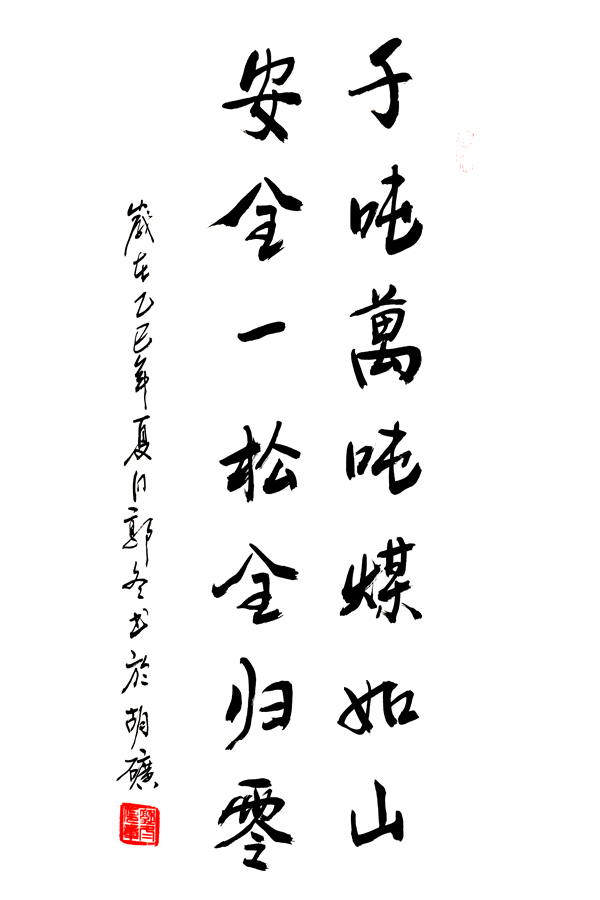 千吨萬吨煤如山
安全一松全归零
歲在乙巳年夏日郭冬书於胡礦